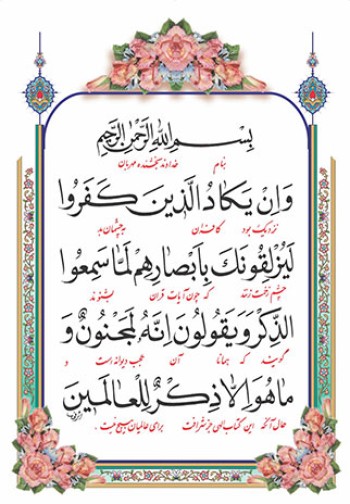 بِسْمِ اللهِ الرَّحْمنِ الرَّحیمِ
بنام خداوند بخشنده مهربان
وَاِنْ یَکادُ الَّذینَ کَفَرُوا
نزدیک بود کافران به چشمان بد
لَیُزْلِقُونَکَ بِاَبْصارِهِمْ لَمّا سَمِعُوا
چشم زخمت زنند که چون آیات قرآن بشنوند
الذِّکْرَ وَیَقُولُونَ اِنَّهُ لَمَجْنُونٌ وَ
گویند که همانا آن عجب دیوانه است و
ما هُوَ اِلّا ذِکْرٌ لِلْعالَمینَ
حال آنکه این کتاب الهی جز شرافت برای عالمیان هیچ نیست .